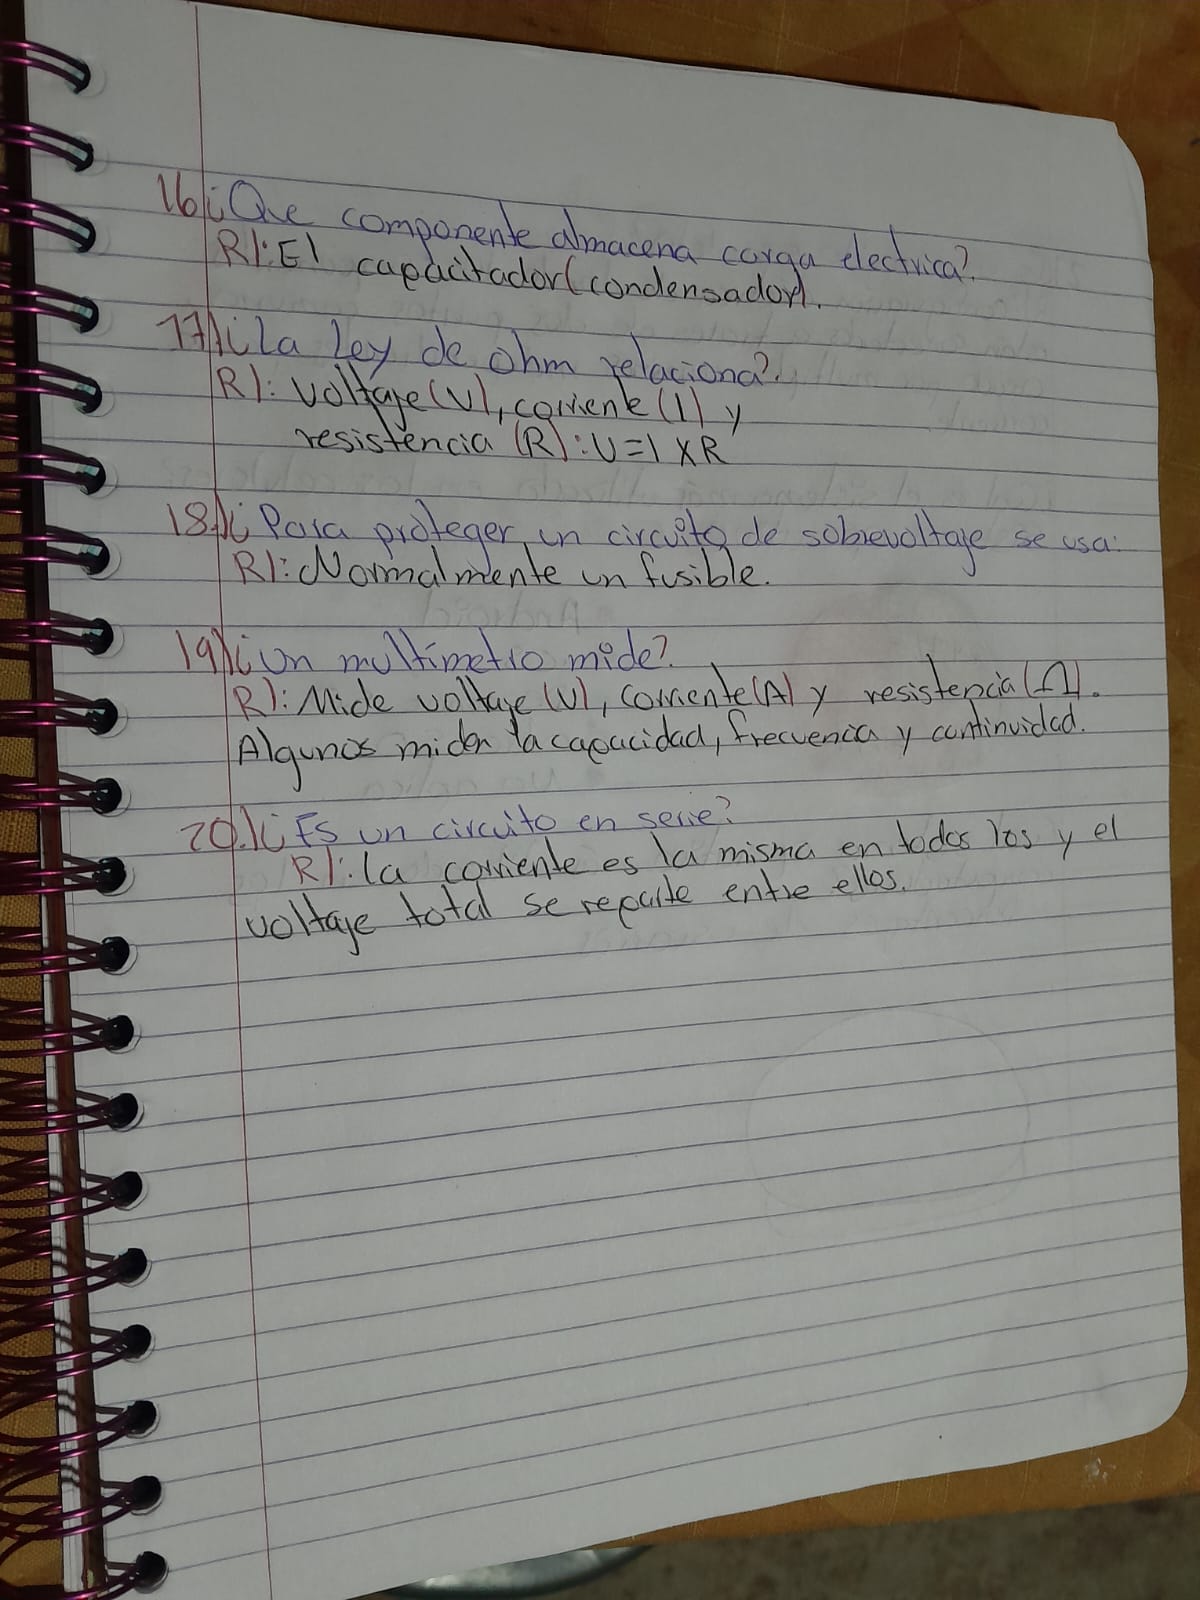 16¿Que componente almacena carga electrica?
R): El capacitador(condensador).
17)¿La Ley de ohm relaciona?.
R): voltaje (V), corriente (I) y
resistencia (R): V=I X R
18.)¿ Para proteger un circuito de sobrevoltaje se usa:
R): Normalmente un fusible.
19)¿Un multímetro mide?.
R): Mide voltaje (V), corriente (A) y resistencia (Ω).
Algunos miden la capacidad, frecuencia y continuidad.
20.)¿ Es un circuito en serie?
R): La corriente es la misma en todos los y el
voltaje total se reparte entre ellos.